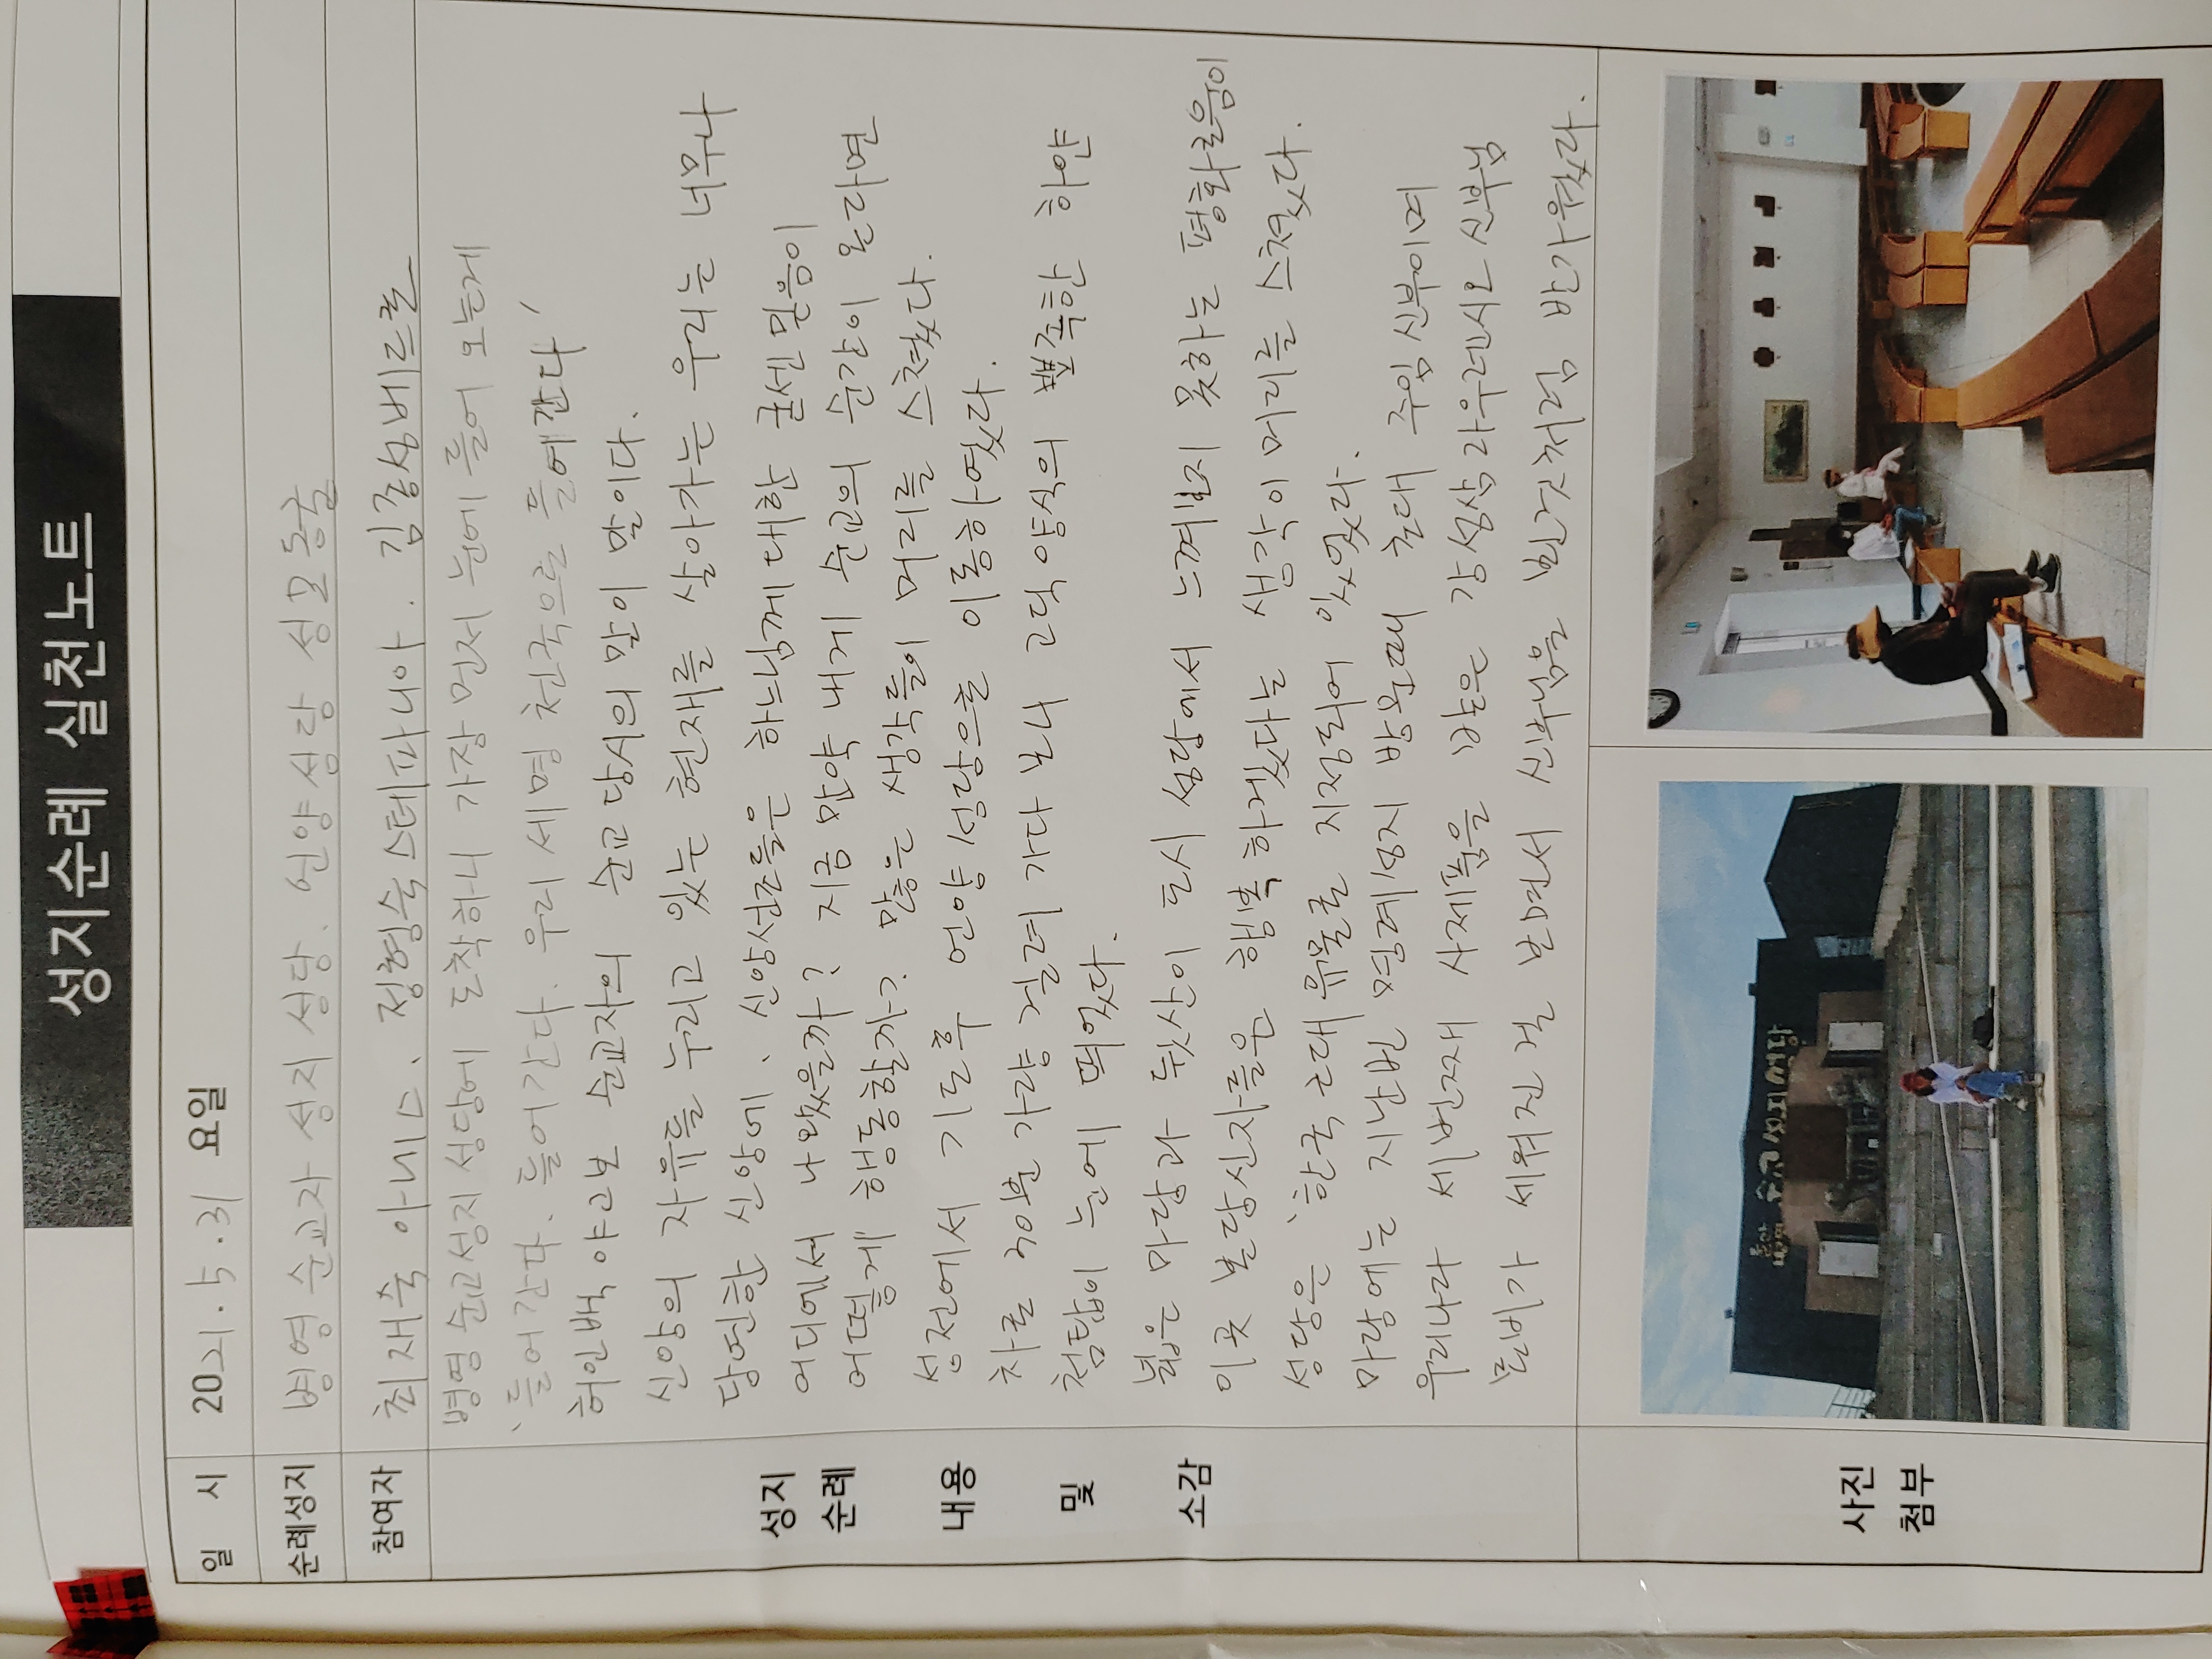 성지순례 실천노트
일 시 2021.5.31 요일
순례성지 병영 순교자 성지 성당. 언양성당 성모동굴
참여자 최재숙 아네스. 정형숙 스테파니아. 김종성베르로
성지 순례 내용 및 소감
병영 순교성지 성당에 도착하니 가장 먼저 눈에 들어 오는게
'들어간다. 들어간다. 우리 세명 천국으로 들어간다'
허인백 야고보 순교자의 순교 당시의 말이 말이다.
신앙의 자유를 누리고 있는 현재를 살아가는 우리는 너무나
당연한 신앙에. 신앙선조들은 하느님께 대한 굳센 믿음이
어디에서 나왔을까? 지금 만약 내게 순교의 순간이 온다면
어떻게 행동할까? 많은 생각들이 머리를 스쳤다.
성전에서 기도후 언양 성당으로 이동하였다.
차로 30분 가량 걸려 가다 보니 고딕양식의 뾰족한 하얀
첨탑이 눈에 띄었다.
넓은 마당과 뒷산이 도시 성당에서 느껴보지 못하는 평화로움이
이곳 본당신자들은 행복하겠다는 생각이 머리를 스쳤다.
성당은 '한국 근대 유물로 지정되어 있었다.
마당에는 지난번 명례성지 방문때 초대 주임 신부이며
우리나라 세번째 사제품을 받은 강성삼라우렌시오 신부님
'돌비가 세워진 걸 보면서 신부님을 뵌것처럼 반가웠다.
사진 첨부
울산 병영 순교성지성당